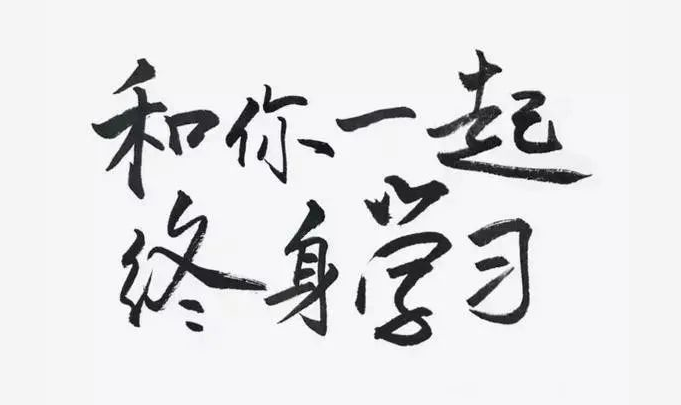 和你一起
终身学习